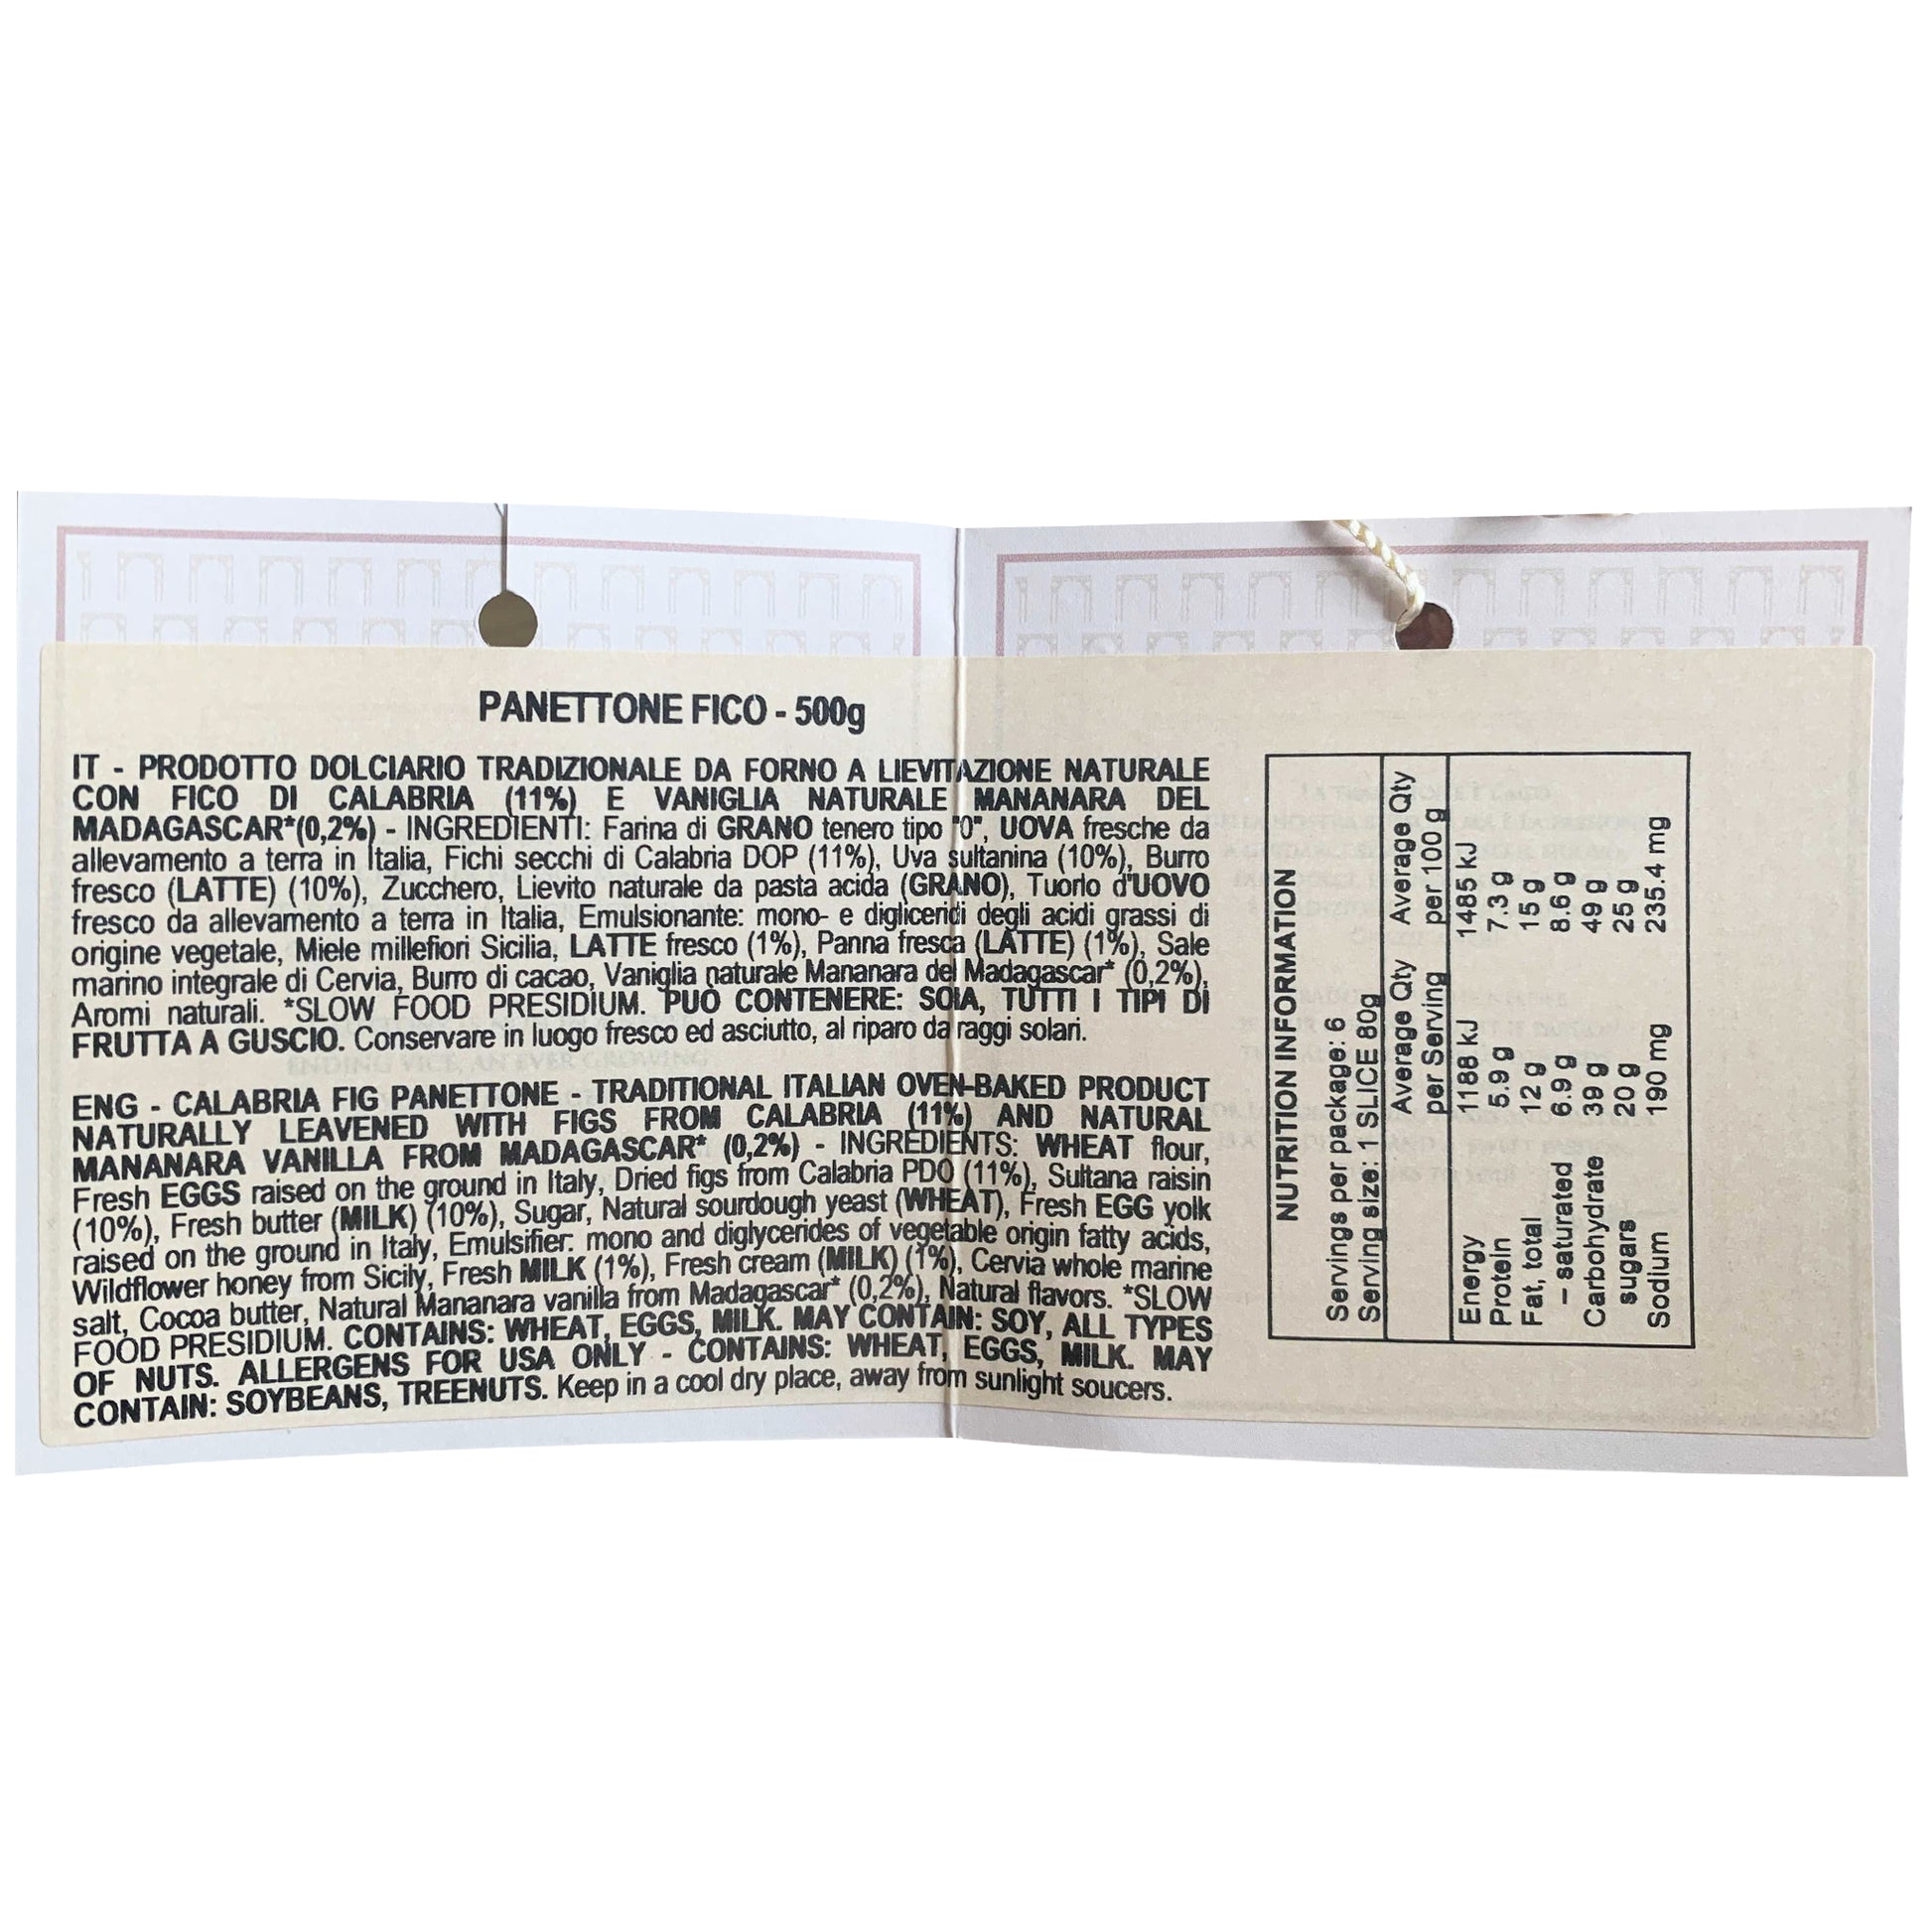 PANETTONE FICO - 500g
IT - PRODOTTO DOLCIARIO TRADIZIONALE DA FORNO A LIEVITAZIONE NATURALE
CON FICO DI CALABRIA (11%) E VANIGLIA NATURALE MANANARA DEL
MADAGASCAR*(0,2%) - INGREDIENTI: Farina di GRANO tenero tipo "0", UOVA fresche da
allevamento a terra in Italia, Fichi secchi di Calabria DOP (11%), Uva sultanina (10%), Burro
fresco (LATTE) (10%), Zucchero, Lievito naturale da pasta acida (GRANO), Tuorlo d'UOVO
fresco da allevamento a terra in Italia, Emulsionante: mono- e digliceridi degli acidi grassi di
origine vegetale, Miele millefiori Sicilia, LATTE fresco (1%), Panna fresca (LATTE) (1%), Sale
marino integrale di Cervia, Burro di cacao, Vaniglia naturale Mananara del Madagascar* (0,2%),
Aromi naturali. *SLOW FOOD PRESIDIUM. PUÒ CONTENERE: SOIA, TUTTI I TIPI DI
FRUTTA A GUSCIO. Conservare in luogo fresco ed asciutto, al riparo da raggi solari.
ENDING VICE, AN EVER GROWING
ENG - CALABRIA FIG PANETTONE - TRADITIONAL ITALIAN OVEN-BAKED PRODUCT
NATURALLY LEAVENED WITH FIGS FROM CALABRIA (11%) AND NATURAL
MANANARA VANILLA FROM MADAGASCAR* (0,2%) - INGREDIENTS: WHEAT flour,
Fresh EGGS raised on the ground in Italy, Dried figs from Calabria PDO (11%), Sultana raisin
(10%), Fresh butter (MILK) (10%), Sugar, Natural sourdough yeast (WHEAT), Fresh EGG yolk
raised on the ground in Italy, Emulsifier: mono and diglycerides of vegetable origin fatty acids,
Wildflower honey from Sicily, Fresh MILK (1%), Fresh cream (MILK) (1%), Cervia whole marine
salt, Cocoa butter, Natural Mananara vanilla from Madagascar* (0,2%), Natural flavors. *SLOW
FOOD PRESIDIUM. CONTAINS: WHEAT, EGGS, MILK. MAY CONTAIN: SOY, ALL TYPES
OF NUTS. ALLERGENS FOR USA ONLY - CONTAINS: WHEAT, EGGS, MILK. MAY
CONTAIN: SOYBEANS, TREENUTS. Keep in a cool dry place, away from sunlight soucers.
NUTRITION INFORMATION
Servings per package: 6
Serving size: 1 SLICE 80g
Average Qty Average Qty
per Serving per 100 g
Energy 1188 kJ 1485 kJ
Protein 5.9 g 7.3 g
Fat, total 12 g 15 g
– saturated 6.9 g 8.6 g
Carbohydrate 39 g 49 g
sugars 20 g 25 g
Sodium 190 mg 235.4 mg